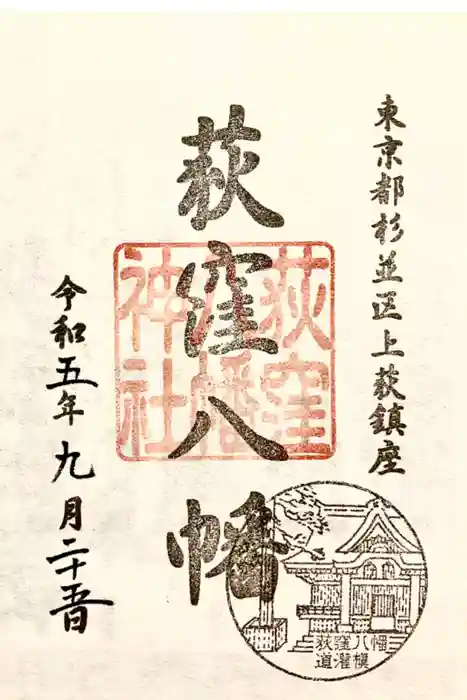 東京都杉並区上荻鎮座
荻窪八幡
荻窪
八幡
神社
令和五年九月二十五日
荻窪八幡
道灌槇